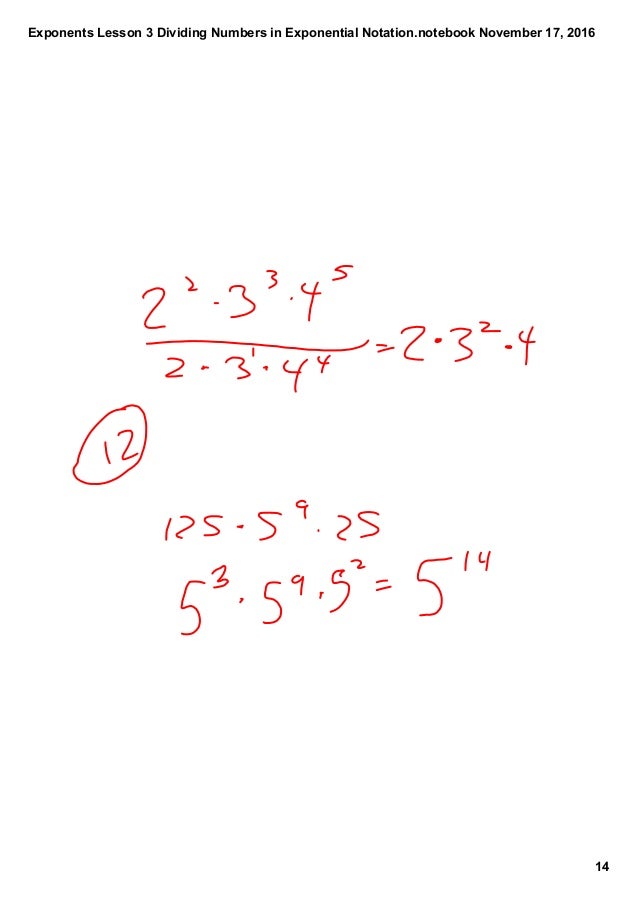 Exponents Lesson 3 Dividing Numbers in Exponential Notation.notebook November 17, 2016
2² · 3³ · 4⁵
2 · 3¹ · 4⁴ = 2 · 3² · 4
12
125 · 5⁹ · 25
5³ · 5⁹ · 5² = 5¹⁴
14